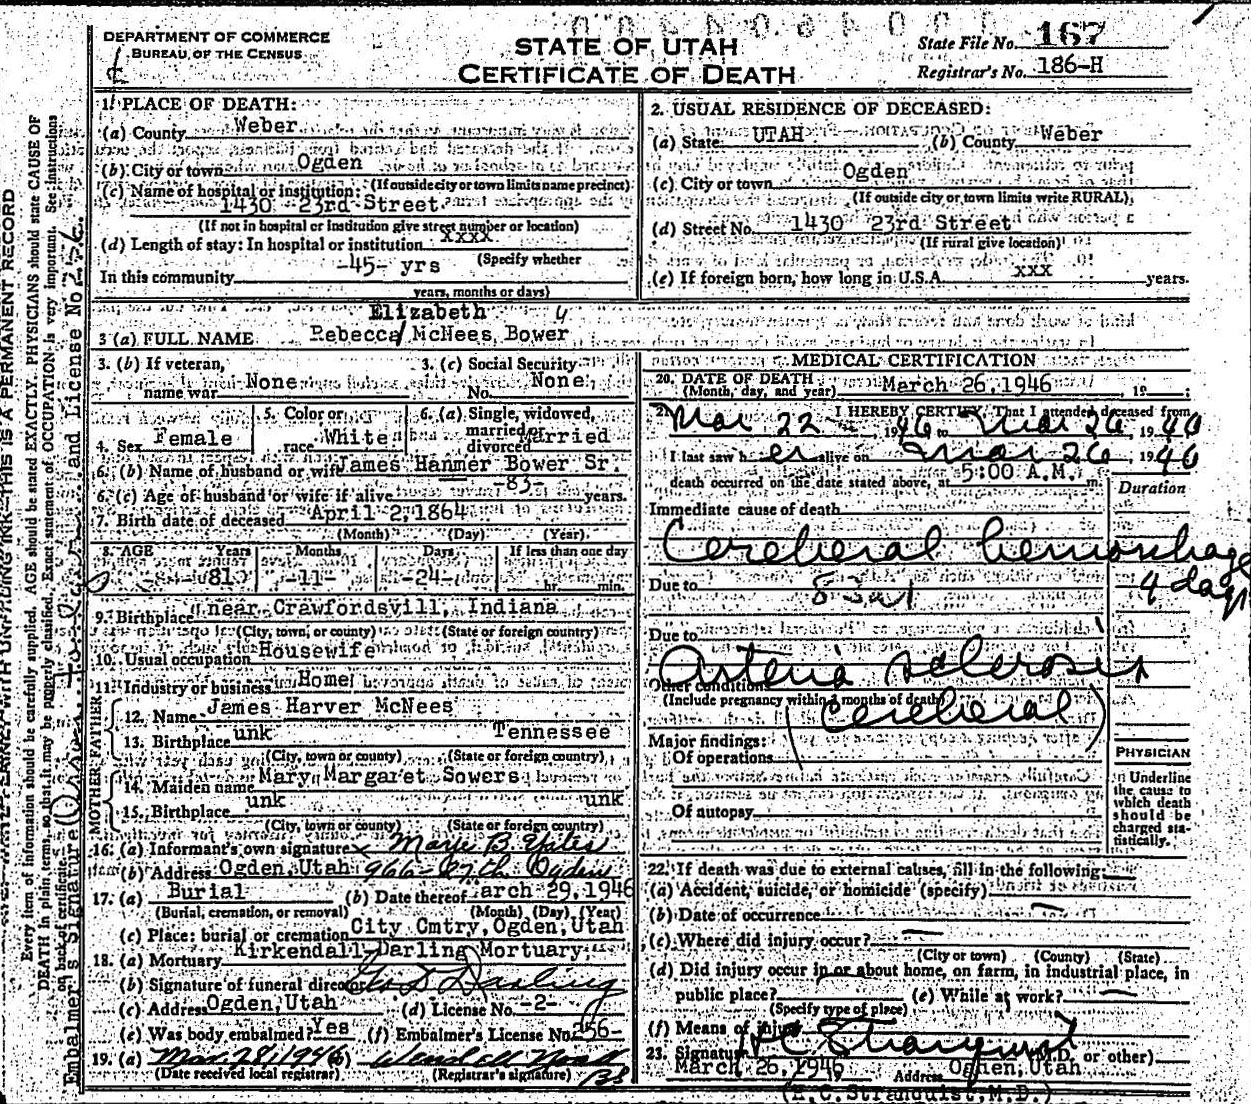 DEPARTMENT OF COMMERCE
BUREAU OF THE CENSUS
STATE OF UTAH
CERTIFICATE OF DEATH
State File No. 167
Registrar's No. 186-H
1. PLACE OF DEATH:
(a) County Weber
(b) City or town Ogden
(If outside city or town limits name precinct)
(c) Name of hospital or institution:
1430 23rd Street
(If not in hospital or institution give street number or location)
(d) Length of stay: In hospital or institution xxxx
(Specify whether
In this community -45- yrs
years, months or days)
2. USUAL RESIDENCE OF DECEASED:
(a) State UTAH (b) County Weber
(c) City or town Ogden
(If outside city or town limits write RURAL)
(d) Street No. 1430 23rd Street
(If rural give location)
(e) If foreign born, how long in U.S.A. xxx years.
Elizabeth
3 (a) FULL NAME Rebecca/ McNees Bower
3. (b) If veteran, name war None
3. (c) Social Security No. None
4. Sex Female
5. Color or race White
6. (a) Single, widowed, married or divorced Married
6. (b) Name of husband or wife James Hanmer Bower Sr.
6. (c) Age of husband or wife if alive -83- years.
7. Birth date of deceased April 2, 1864
(Month) (Day) (Year)
8. AGE Years Months Days If less than one day
81 -11- -24- hr. min.
9. Birthplace near Crawfordsvill, Indiana
(City, town, or county) (State or foreign country)
10. Usual occupation Housewife
11. Industry or business Home
FATHER
12. Name James Harver McNees
13. Birthplace unk Tennessee
(City, town or county) (State or foreign country)
MOTHER
14. Maiden name Mary Margaret Sowers
15. Birthplace unk unk
(City, town or county) (State or foreign country)
16. (a) Informant's own signature x Marie B. Yates
(b) Address Ogden, Utah 966-27th Ogden
17. (a) Burial (b) Date thereof arch 29, 1946
(Burial, cremation, or removal) (Month) (Day) (Year)
(c) Place: burial or cremation City Cmtry, Ogden, Utah
18. (a) Mortuary Kirkendall-Darling Mortuary
(b) Signature of funeral director Geo S Darling
(c) Address Ogden, Utah (d) License No. -2-
(e) Was body embalmed? Yes (f) Embalmer's License No. 256-
19. (a) Mar. 28, 1946 (b) Wendell
(Date received local registrar) (Registrar's signature)
MEDICAL CERTIFICATION
20. DATE OF DEATH March 26, 1946, 19
(Month, day, and year)
21. I HEREBY CERTIFY, That I attended deceased from
Mar 22, 1946 to Mar 26, 1946
I last saw her alive on Mar 26, 1946
death occurred on the date stated above, at 5:00 A.M. m.
Duration
Immediate cause of death
Cerebral hemorrhage
4 days
Due to 83a1
Due to
Arterio sclerosis
Other conditions
(Include pregnancy within 3 months of death)
(Cerebral)
Major findings:
Of operations
Of autopsy
PHYSICIAN
Underline
the cause to
which death
should be
charged sta-
tistically.
22. If death was due to external causes, fill in the following:
(a) Accident, suicide, or homicide (specify)
(b) Date of occurrence
(c) Where did injury occur?
(City or town) (County) (State)
(d) Did injury occur in or about home, on farm, in industrial place, in
public place? (e) While at work?
(Specify type of place)
(f) Means of injury
23. Signature H C Stranquist (M.D. or other)
March 26, 1946 Address Ogden, Utah
(H.C.Stranquist, M.D.)
THIS IS A PERMANENT RECORD
Every item of information should be carefully supplied. AGE should be stated EXACTLY. PHYSICIANS should state CAUSE OF
DEATH in plain terms, so that it may be properly classified. Exact statement of OCCUPATION is very important. See instructions
on back of certificate.
Embalmer's Signature and License No. 256